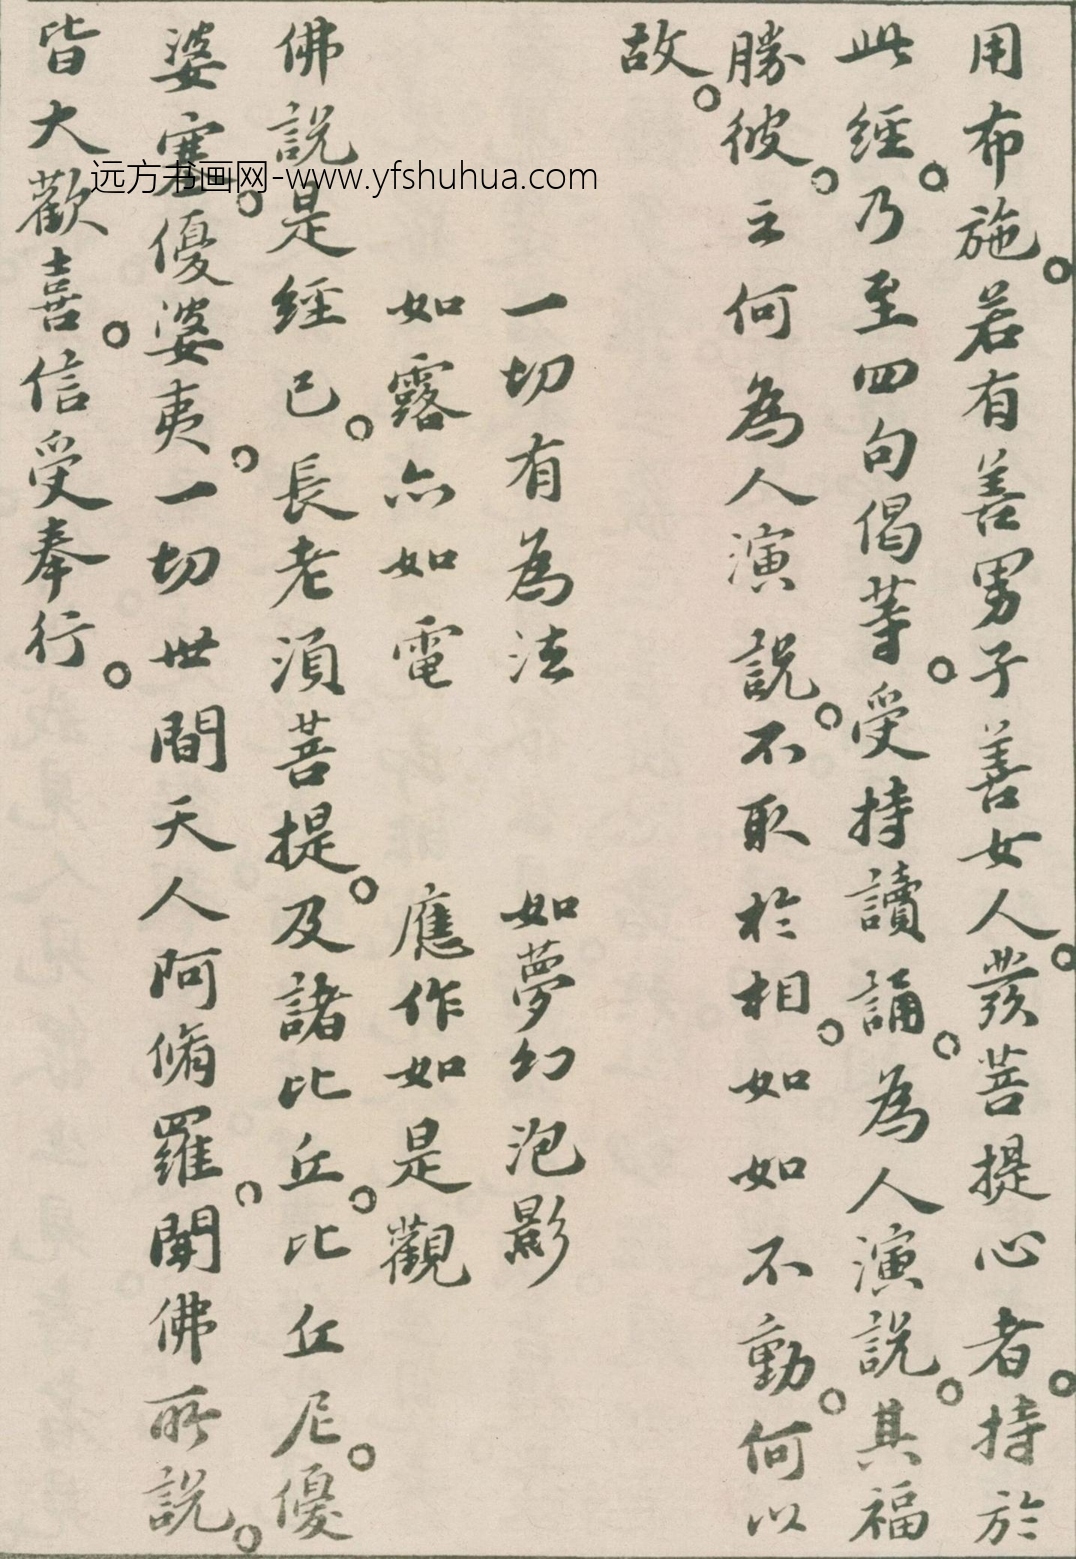 用布施。若有善男子善女人。發菩提心者。持於
此經。乃至四句偈等。受持讀誦。為人演說。其福
勝彼。云何為人演說。不取於相。如如不動。何以
故。
一切有為法 如夢幻泡影
如露亦如電 應作如是觀
佛說是經已。長老須菩提。及諸比丘。比丘尼。優
婆塞。優婆夷。一切世間天人阿脩羅。聞佛所說。
皆大歡喜。信受奉行。
远方书画网-www.yfshuhua.com